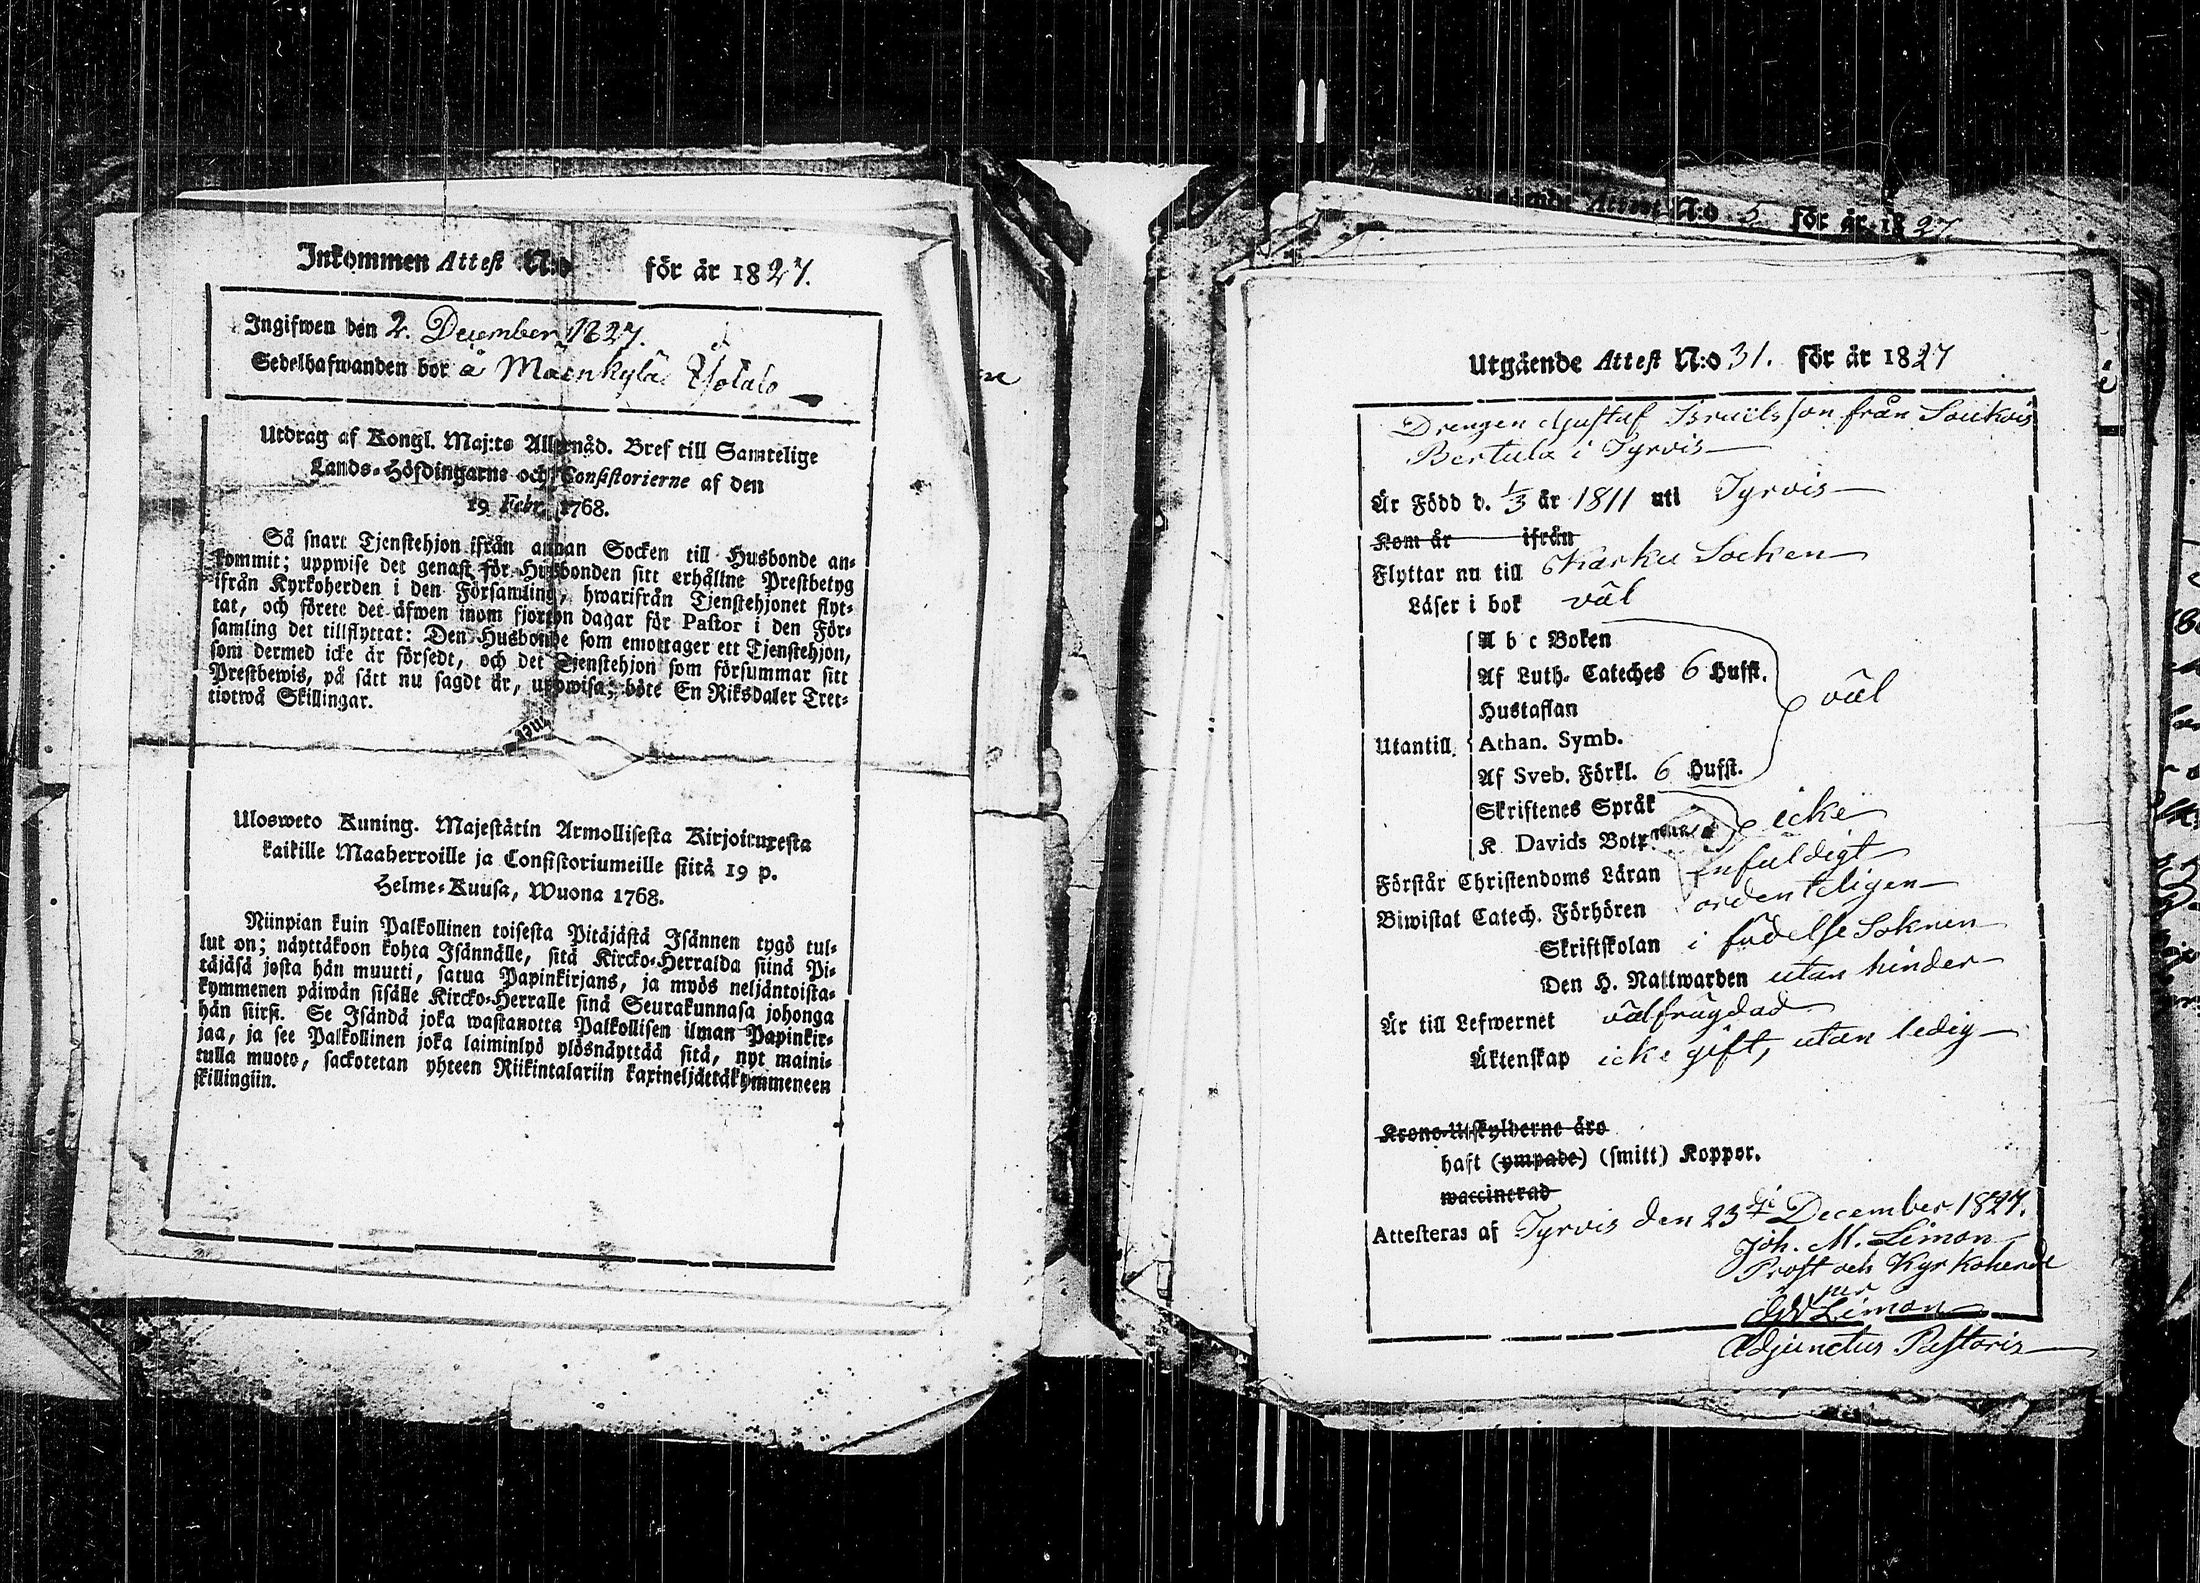 Inkommen Attest N:o för år 1827.
Ingifwen den 2. December 1827.
Sedelhafwanden bor å Maenkylä
Utdrag af Kongl. Maj:ts Allernåd. Bref till Samtelige
Lands-Höfdingarne och Consistorierne af den
19 Febr. 1768.
Så snart Tjenstehjon ifrån annan Socken till Husbonde an-
kommit; uppwise det genast för Husbonden sitt erhållne Prestbetyg
ifrån Kyrkoherden i den Församling, hwarifrån Tjenstehjonet flyt-
tat, och förete det äfwen inom fjorton dagar för Pastor i den För-
samling det tillflyttat: Den Husbonde som emottager ett Tjenstehjon,
som dermed icke är försedt, och det Tjenstehjon som försummar sitt
Prestbewis, på sätt nu sagdt är, uppwisa; böte En Riksdaler Tret-
tiotwå Skillingar.
Ulosweto Kuning. Majestätin Armollisesta Kirjoituxesta
kaikille Maaherroille ja Consistoriumeille siitä 19 p.
Helme-Kuusa, Wuona 1768.
Niinpian kuin Palkollinen toisesta Pitäjästä Isännen tygö tul-
lut on; näyttäkoon kohta Isännälle, sitä Kircko-Herralda siinä Pi-
täjäsä josta hän muutti, saatua Papinkirjans, ja myös neljäntoista-
kymmenen päiwän sisälle Kircko-Herralle sinä Seurakunnasa johonga
hän siirsi. Se Isändä joka wastanotta Palkollisen ilman Papinkir-
jaa, ja see Palkollinen joka laiminlyö ylösnäyttää sitä, nyt maini-
tulla muoto, sackotetan yhteen Riikintalariin kaxineljättäkymmeneen
skillingiin.
Attest N:o 5 för år 1827.
Utgående Attest N:o 31. för år 1827
Drengen Gustaf Israelsson från Soukois
Bertula i Tyrvis
Är Född d. 1/3 år 1811 uti Tyrvis
Kom år ifrån
Flyttar nu till Karku Socken
Läser i bok väl
A b c Boken
Af Luth. Cateches 6 Hufst.
Hustaflan
väl
Utantill Athan. Symb.
Af Sveb. Förkl. 6 Hufst.
Skriftenes Språk
K. Davids Botps. icke
Förstår Christendoms Läran enfaldigt
Biwistat Catech. Förhören ordenteligen
Skriftskolan i födelse Soknen
Den H. Nattwarden utan hinder
Är till Lefwernet välfrägdad
Äktenskap icke gift, utan ledig
Krono-Utskylderne äro
haft (ympade) (smitt) Koppor.
waccinerad
Attesteras af Tyrvis den 23dje December 1827.
Joh. M. Limon
Prost och Kyrkoherde
per
GW Limon
Adjunctus Pastoris